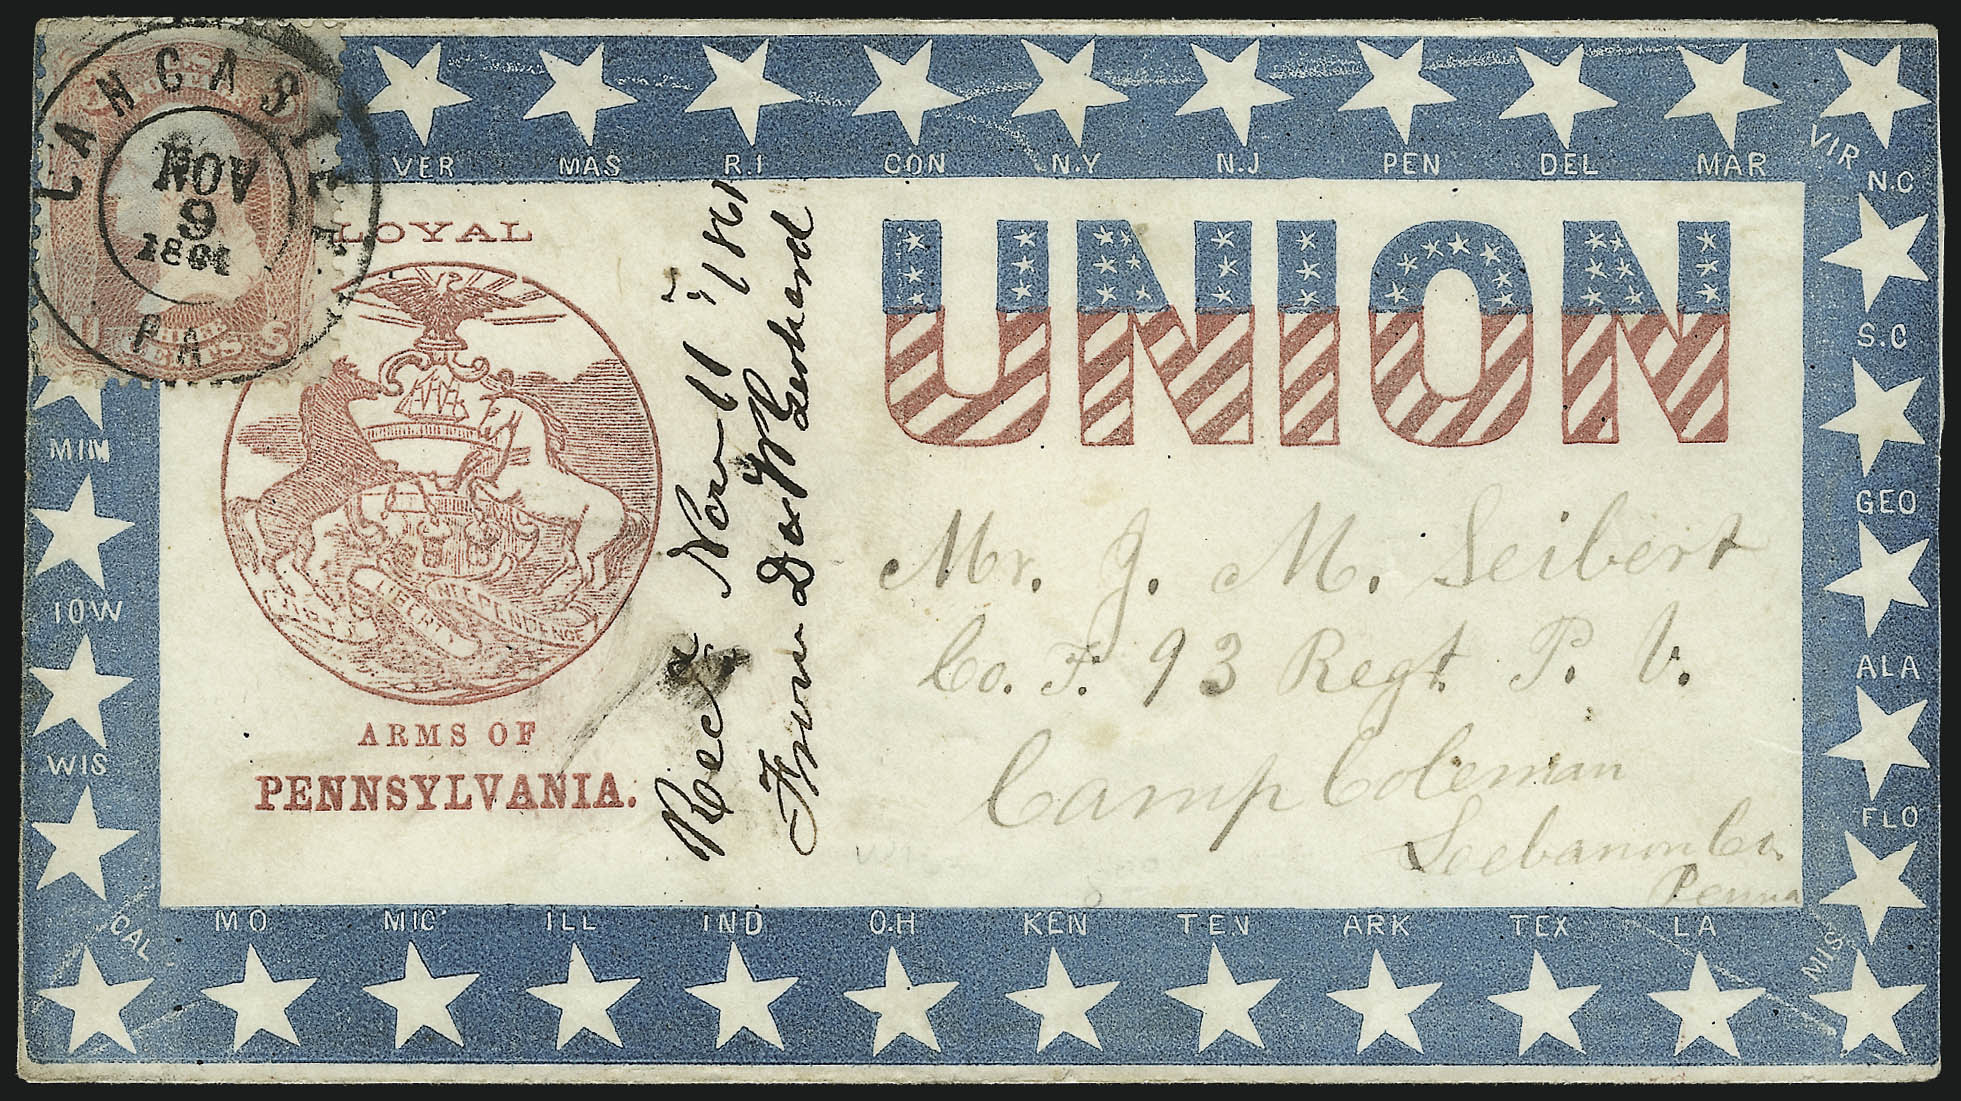 LANCASTER
NOV
9
1861
PA
U THREE S
CENTS
VER MAS R.I CON N.Y N.J PEN DEL MAR VIR
N.C
S.C
GEO
ALA
FLO
MIS
LOYAL
LIBERTY INDEPENDENCE
ARMS OF
PENNSYLVANIA.
Rec'd Nov 11th 1861
From D W Gerhard
UNION
Mr. J. M. Seibert
Co. F. 93 Regt. P. V.
Camp Coleman
Leebanon Co.
Penna
MIM
IOW
WIS
CAL
MO MIC ILL IND O.H KEN TEN ARK TEX LA